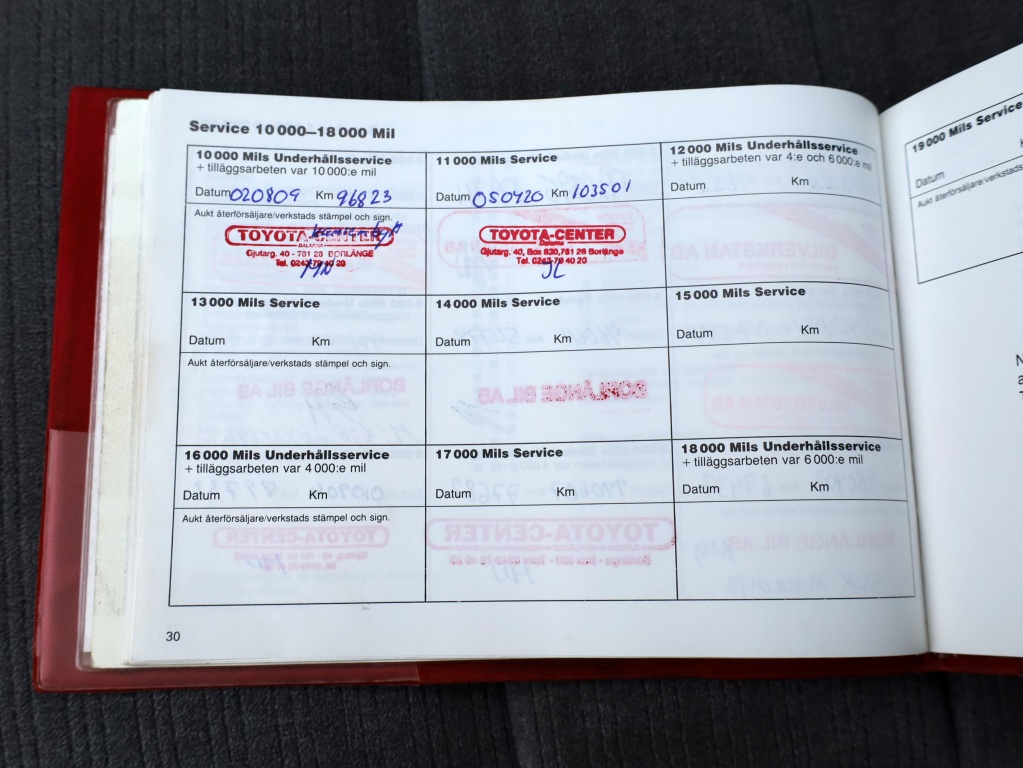 Service 10 000–18 000 Mil
10 000 Mils Underhållsservice
+ tilläggsarbeten var 10 000:e mil
Datum 020809 Km 96823
11 000 Mils Service
Datum 050420 Km 103501
12 000 Mils Underhållsservice
+ tilläggsarbeten var 4:e och 6 000:e mil
Datum Km
Aukt återförsäljare/verkstads stämpel och sign.
TOYOTA-CENTER
Gjutarg. 40 - 781 28 BORLÄNGE
Tel. 0243-79 40 20
TOYOTA-CENTER
Gjutarg. 40, Box 830, 781 28 Borlänge
Tel. 0243-79 40 20
JL
13 000 Mils Service
Datum Km
14 000 Mils Service
Datum Km
15 000 Mils Service
Datum Km
Aukt återförsäljare/verkstads stämpel och sign.
BORLÄNGE BIL AB
16 000 Mils Underhållsservice
+ tilläggsarbeten var 4 000:e mil
Datum Km
17 000 Mils Service
Datum Km
18 000 Mils Underhållsservice
+ tilläggsarbeten var 6 000:e mil
Datum Km
Aukt återförsäljare/verkstads stämpel och sign.
TOYOTA-CENTER
30
19 000 Mils Service
Datum
Aukt återförsäljare/verkstads